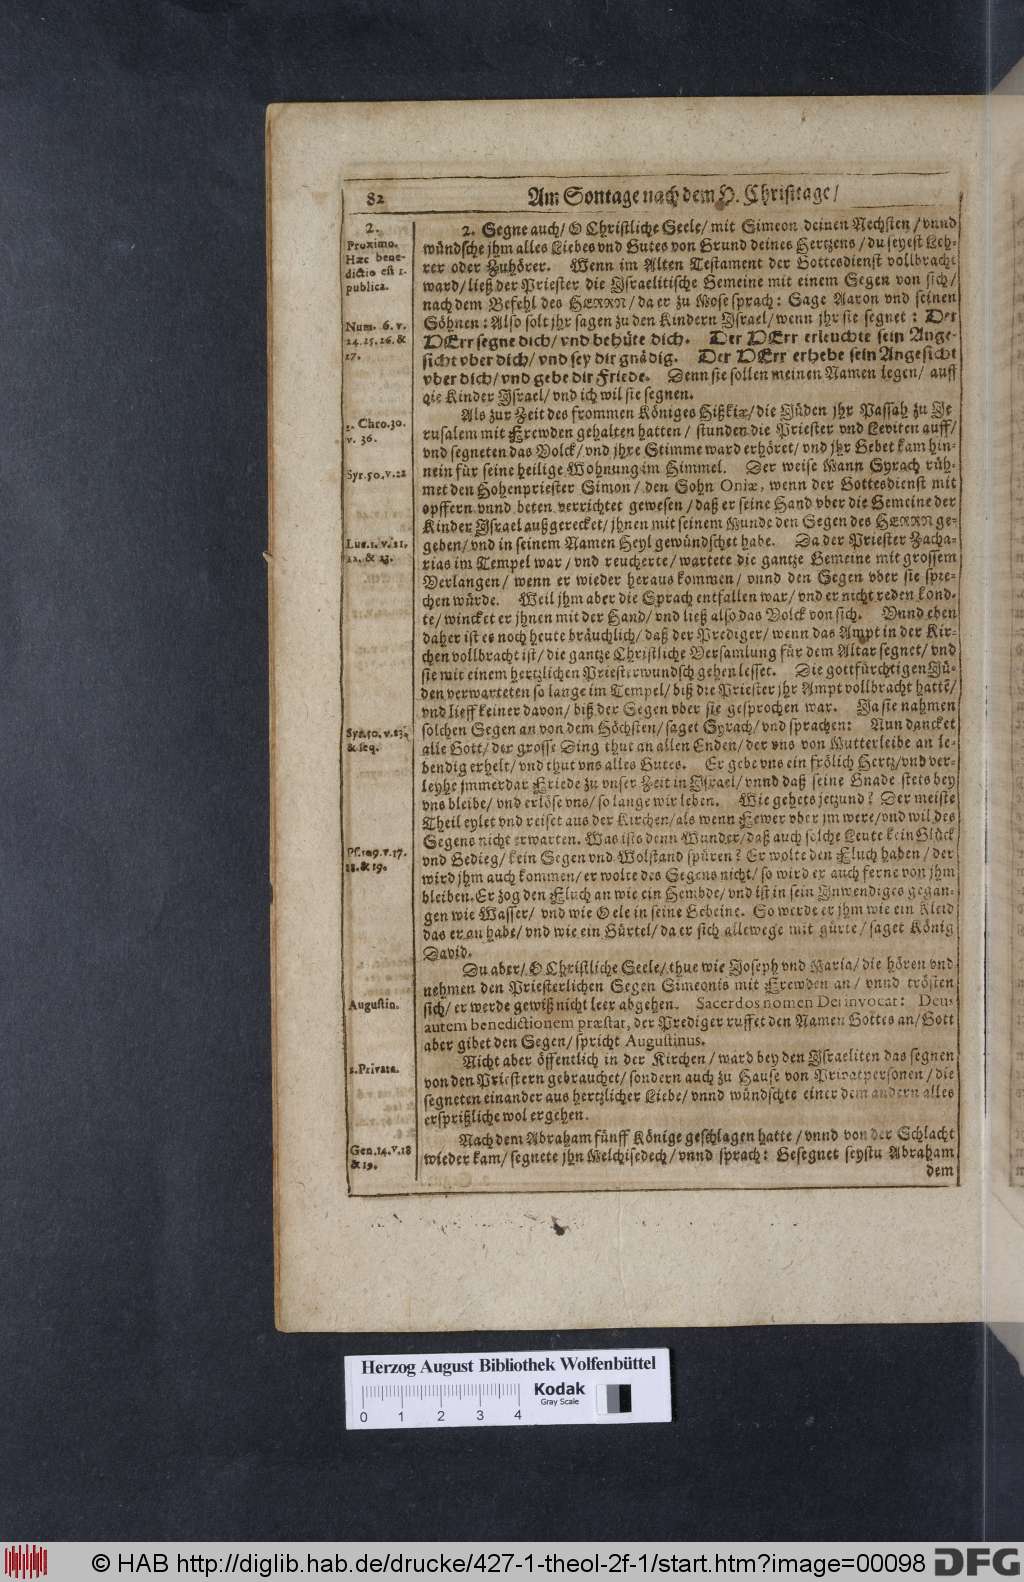 82
Am Sontage nach dem H. Christtage/
2.
Proximo.
Hæc bene-
dictio est 1.
publica.
Num. 6. v.
24. 25. 26. &
27.
2. Chro. 30.
v. 36.
Syr. 50. v. 22
Luc. 1. v. 21.
22. & 23.
Syr. 50. v. 23.
& seq.
Ps. 109. v. 17.
18. & 19.
Augustin.
2. Private.
Gen. 14. v. 18
& 19.
2. Segne auch/ O Christliche Seele/ mit Simeon deinen Nechsten/ vnnd
wündsche jhm alles Liebes vnd Gutes von Grund deines Hertzens/ du seyest Leh-
rer oder Zuhörer. Wenn im Alten Testament der Gottesdienst vollbracht
ward/ ließ der Priester die Israelitische Gemeine mit einem Segen von sich/
nach dem Befehl des HERRN/ da er zu Mose sprach: Sage Aaron vnd seinen
Söhnen: Also solt jhr sagen zu den Kindern Israel/ wenn jhr sie segnet: Der
HErr segne dich/ vnd behüte dich. Der HErr erleuchte sein Ange-
sicht vber dich/ vnd sey dir gnädig. Der HErr erhebe sein Angesicht
vber dich/ vnd gebe dir Friede. Denn sie sollen meinen Namen legen/ auff
die Kinder Israel/ vnd ich wil sie segnen.
Als zur Zeit des frommen Königes Hißkiæ/ die Jüden jhr Passah zu Je
rusalem mit Frewden gehalten hatten/ stunden die Priester vnd Leviten auff/
vnd segneten das Volck/ vnd jhre Stimme ward erhöret/ vnd jhr Gebet kam hin-
nein für seine heilige Wohnung im Himmel. Der weise Mann Syrach rüh-
met den Hohenpriester Simon/ den Sohn Oniæ, wenn der Gottesdienst mit
opffern vnnd beten verrichtet gewesen/ daß er seine Hand vber die Gemeine der
Kinder Israel außgerecket/ jhnen mit seinem Munde den Segen des HERRN ge-
geben/ vnd in seinem Namen Heyl gewündschet habe. Da der Priester Zacha-
rias im Tempel war/ vnd reucherte/ wartete die gantze Gemeine mit grossem
Verlangen/ wenn er wieder heraus kommen/ vnnd den Segen vber sie spre-
chen würde. Weil jhm aber die Sprach entfallen war/ vnd er nicht reden kond-
te/ wincket er jhnen mit der Hand/ vnd ließ also das Volck von sich. Vnnd eben
daher ist es noch heute bräuchlich/ daß der Prediger/ wenn das Ampt in der Kir-
chen vollbracht ist/ die gantze Christliche Versamlung für dem Altar segnet/ vnd
sie mit einem hertzlichen Priesterwundsch gehen lesset. Die gottfürchtigen Jü-
den verwarteten so lange im Tempel/ biß die Priester jhr Ampt vollbracht hattē/
vnd lieff keiner davon/ biß der Segen vber sie gesprochen war. Ja sie nahmen
solchen Segen an von dem Höchsten/ saget Syrach/ vnd sprachen: Nun dancket
alle Gott/ der grosse Ding thut an allen Enden/ der vns von Mutterleibe an le-
bendig erhelt/ vnd thut vns alles Gutes. Er gebe vns ein frölich Hertz/ vnd ver-
leyhe jmmerdar Friede zu vnser Zeit in Israel/ vnnd daß seine Gnade stets bey
vns bleibe/ vnd erlöse vns/ so lange wir leben. Wie gehets jetzund? Der meiste
Theil eylet vnd reiset aus der Kirchen/ als wenn Fewer vber jm were/ vnd wil des
Segens nicht erwarten. Was ists denn Wunder/ daß auch solche Leute kein Glück
vnd Gedieg/ kein Segen vnd Wolstand spüren? Er wolte den Fluch haben/ der
wird jhm auch kommen/ er wolte des Segens nicht/ so wird er auch ferne von jhm
bleiben. Er zog den Fluch an wie ein Hembde/ vnd ist in sein Inwendiges gegan-
gen wie Wasser/ vnd wie Oele in seine Gebeine. So werde er jhm wie ein Kleid
das er an habe/ vnd wie ein Gürtel/ da er sich allewege mit gürte/ saget König
David.
Du aber/ O Christliche Seele/ thue wie Joseph vnd Maria/ die hören vnd
nehmen den Priesterlichen Segen Simeonis mit Frewden an/ vnnd trösten
sich/ er werde gewiß nicht leer abgehen. Sacerdos nomen Dei invocat: Deus
autem benedictionem præstat, der Prediger ruffet den Namen Gottes an/ Gott
aber gibet den Segen/ spricht Augustinus.
Nicht aber öffentlich in der Kirchen/ ward bey den Israeliten das segnen
von den Priestern gebrauchet/ sondern auch zu Hause von Privatpersonen/ die
segneten einander aus hertzlicher Liebe/ vnnd wündschte einer dem andern alles
ersprißliche wol ergehen.
Nach dem Abraham fünff Könige geschlagen hatte/ vnnd von der Schlacht
wieder kam/ segnete jhn Melchisedech/ vnnd sprach: Gesegnet seystu Abraham
dem
Herzog August Bibliothek Wolfenbüttel
Kodak
Gray Scale
0 1 2 3 4
© HAB http://diglib.hab.de/drucke/427-1-theol-2f-1/start.htm?image=00098
DFG